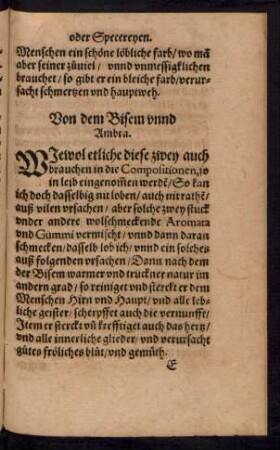 oder Specereyen.
Menschen ein schöne löbliche farb/ wo mā
aber seiner zůuiel/ vnnd vnmessigklichen
brauchet/ so gibt er ein bleiche farb/verur-
sacht schmertzen vnd hauptweh.
Von dem Bisem vnnd
Ambra.
WJewol etliche diese zwey auch
brauchen in die Compositionen, so
in leib eingenom̄en werdē/ So kan
ich doch dasselbig nit loben/ auch nit rathē/
auß vilen vrsachen/ aber solche zwey stuck
vnder andere wolschmeckende Aromata
vnd Gummi vermischt/ vnnd dann daran
schmecken/ dasselb lob ich/ vnnd ein solches
auß folgenden vrsachen/ Dann nach dem
der Bisem warmer vnd truckner natur im
andern grad/ so reiniget vnd sterckt er dem
Menschen Hirn vnd Haupt/ vnd alle leb-
liche geister/ scherpfft auch die vernunfft/
Jtem er sterckt vn̄ kreffriget auch das hertz/
vnd alle innerliche glieder/ vnd verursacht
gůtes fröliches blůt/ vnd gemůth.
E